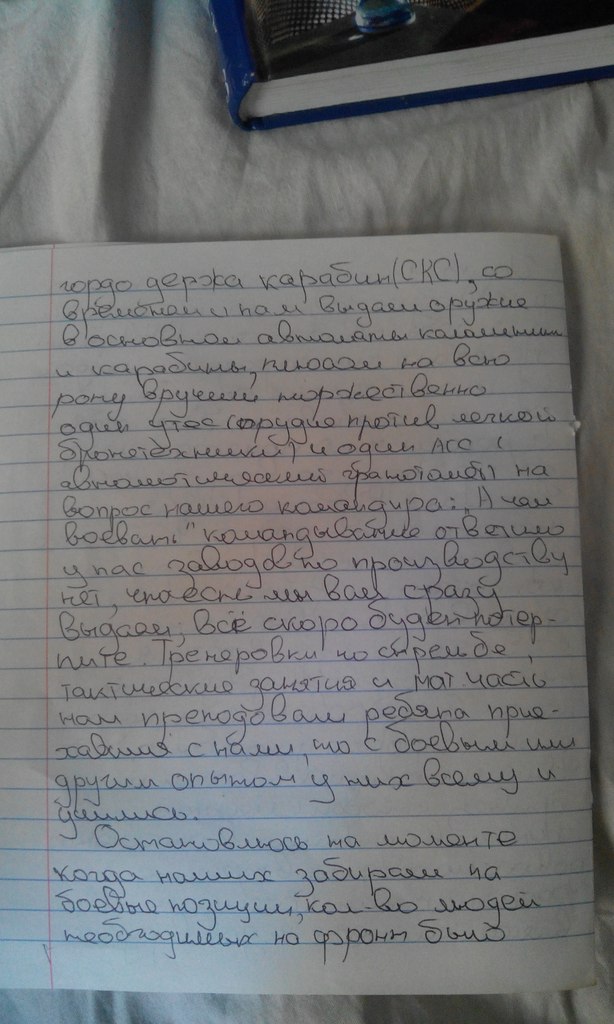 гордо держа карабин(СКС), со
временем и нам выдали оружие
в основном автоматы калашников
и карабины, плюсом на всю
роту вручили торжественно
один утёс (орудие против легкой
бронетехники) и один АГС (
автоматический гранатомёт) на
вопрос нашего командира: „А чем
воевать" командывание ответило
у нас заводов по производству
нет, что есть мы вам сразу
выдаем, всё скоро будет потер-
пите. Тренеровки по стрельбе,
тактические занятия и мат. часть
нам преподовали ребята прие-
хавшие с нами, но с боевым или
другим опытом у них всему и
учились.
Остановлюсь на моменте
когда наших забирали на
боевые позиции, кол-во людей
необходимых на фронт было